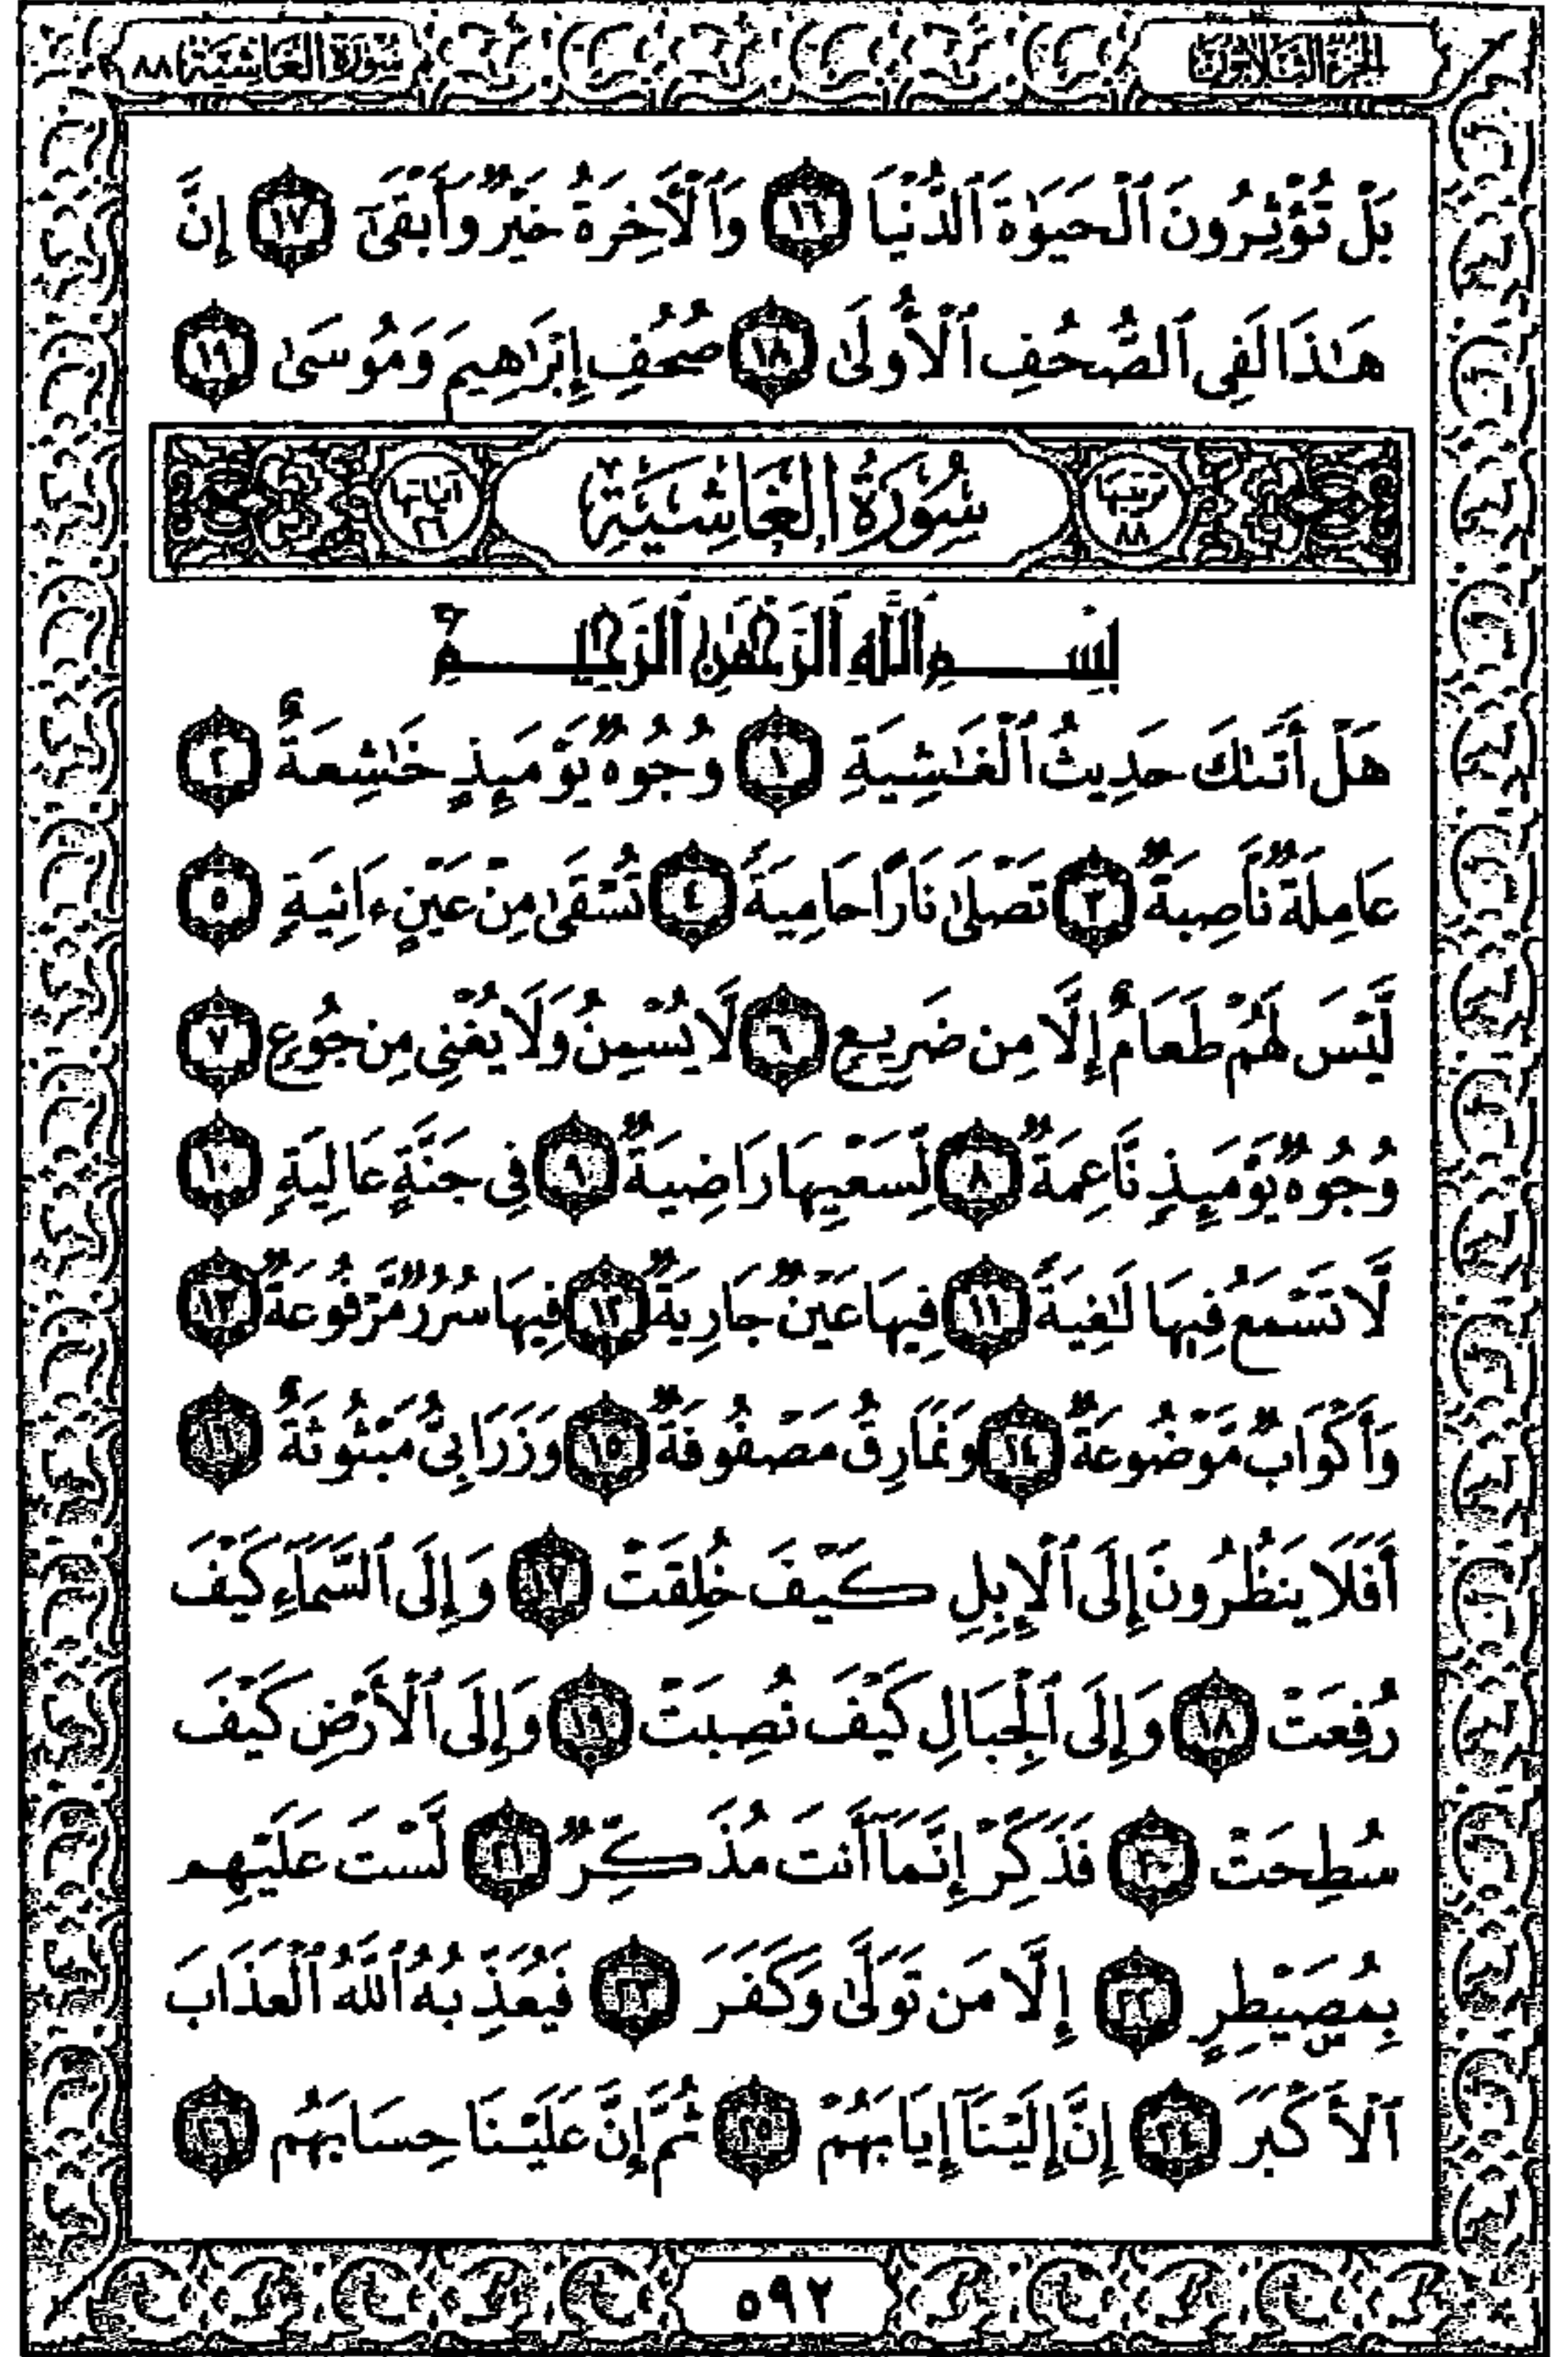 الجزء الثلاثون
سورة الغاشية ٨٨
بَلْ تُؤْثِرُونَ ٱلْحَيَوٰةَ ٱلدُّنْيَا ١٦ وَٱلْأَخِرَةُ خَيْرٌ وَأَبْقَىٰٓ ١٧ إِنَّ
هَـٰذَا لَفِى ٱلصُّحُفِ ٱلْأُولَىٰ ١٨ صُحُفِ إِبْرَٰهِيمَ وَمُوسَىٰ ١٩
ترتيبها ٨٨
سُورَةُ الْغَاشِيَةِ
آياتها ٢٦
بِسْمِ ٱللَّهِ ٱلرَّحْمَـٰنِ ٱلرَّحِيمِ
هَلْ أَتَىٰكَ حَدِيثُ ٱلْغَـٰشِيَةِ ١ وُجُوهٌ يَوْمَئِذٍ خَـٰشِعَةٌ ٢
عَامِلَةٌ نَّاصِبَةٌ ٣ تَصْلَىٰ نَارًا حَامِيَةً ٤ تُسْقَىٰ مِنْ عَيْنٍ ءَانِيَةٍ ٥
لَّيْسَ لَهُمْ طَعَامٌ إِلَّا مِن ضَرِيعٍ ٦ لَّا يُسْمِنُ وَلَا يُغْنِى مِن جُوعٍ ٧
وُجُوهٌ يَوْمَئِذٍ نَّاعِمَةٌ ٨ لِّسَعْيِهَا رَاضِيَةٌ ٩ فِى جَنَّةٍ عَالِيَةٍ ١٠
لَّا تَسْمَعُ فِيهَا لَـٰغِيَةً ١١ فِيهَا عَيْنٌ جَارِيَةٌ ١٢ فِيهَا سُرُرٌ مَّرْفُوعَةٌ ١٣
وَأَكْوَابٌ مَّوْضُوعَةٌ ١٤ وَنَمَارِقُ مَصْفُوفَةٌ ١٥ وَزَرَابِىُّ مَبْثُوثَةٌ ١٦
أَفَلَا يَنظُرُونَ إِلَى ٱلْإِبِلِ كَيْفَ خُلِقَتْ ١٧ وَإِلَى ٱلسَّمَآءِ كَيْفَ
رُفِعَتْ ١٨ وَإِلَى ٱلْجِبَالِ كَيْفَ نُصِبَتْ ١٩ وَإِلَى ٱلْأَرْضِ كَيْفَ
سُطِحَتْ ٢٠ فَذَكِّرْ إِنَّمَآ أَنتَ مُذَكِّرٌ ٢١ لَّسْتَ عَلَيْهِم
بِمُصَيْطِرٍ ٢٢ إِلَّا مَن تَوَلَّىٰ وَكَفَرَ ٢٣ فَيُعَذِّبُهُ ٱللَّهُ ٱلْعَذَابَ
ٱلْأَكْبَرَ ٢٤ إِنَّ إِلَيْنَآ إِيَابَهُمْ ٢٥ ثُمَّ إِنَّ عَلَيْنَا حِسَابَهُم ٢٦
٥٩٢